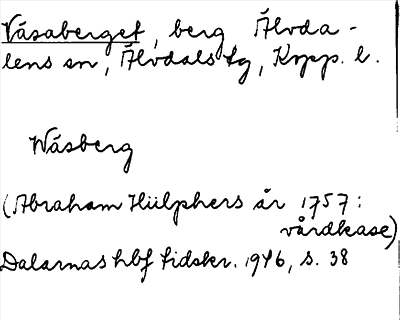 Våsaberget, berg Älvda-
lens sn, Älvdals tg, Kopp. l.
Wåsberg
(Abraham Hülphers år 1757:
vårdkase)
Dalarnas hbf tidskr. 1946, s. 38